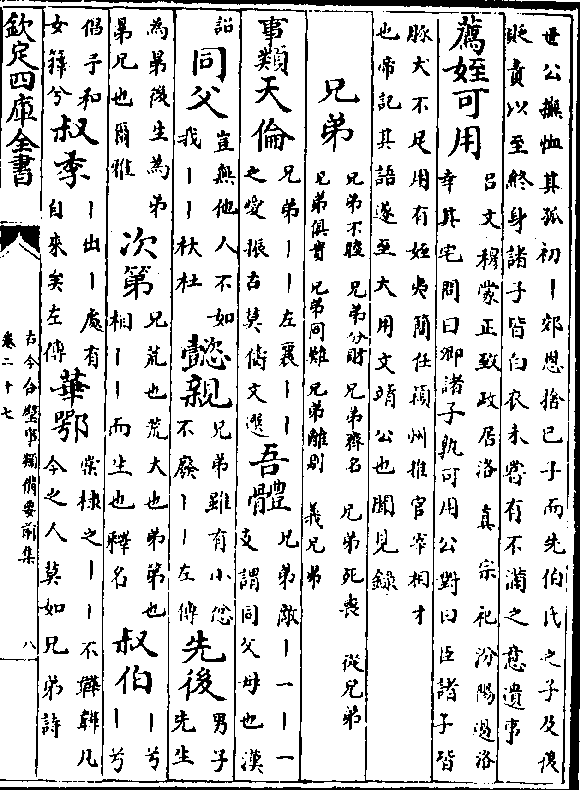 世公撫恤其孤初丨郊恩捨已子而先伯氏之子及後
貶責以至終身諸子皆白衣未嘗有不滿之意遺事
薦姪可用 呂文穆蒙正致政居洛 真宗祀汾陽過洛
幸其宅問曰卿諸子孰可用公對曰臣諸子皆
豚犬不足用有姪夷簡任潁州推官宰相才
也帝記其語遂至大用文靖公也聞見錄
兄弟 兄弟不睦 兄弟分財 兄弟齊名 兄弟死喪 從兄弟
兄弟俱貴 兄弟同難 兄弟離别 義兄弟
事類 天倫 兄弟丨丨左襄丨丨之愛振古莫儔文選 吾體 兄弟敵丨一丨一支謂同父母也漢
詔 同父 豈無他人不如我丨丨杕杜 懿親 兄弟雖有小忿不廢丨丨左傳 先後 男子先生
為昆後生為弟昆兄也爾雅 次第 兄荒也荒大也弟第也相丨丨而生也釋名 叔伯 丨兮丨兮
倡予和女蘀兮 叔季 丨出丨處有自來矣左傳 華鄂 棠棣之丨丨不韡韡凡今之人莫如兄弟詩
欽定四庫全書
古今合璧事類備要前集
卷二十七
八